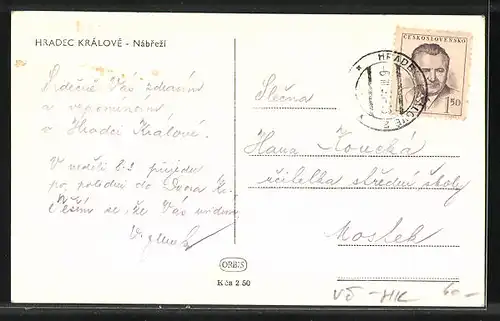 HRADEC KRÁLOVÉ - Nábřeží
ČESKOSLOVENSKO
HRADEC KRÁLOVÉ
1'50
Srdečně Vás zdravím
a vzpomínám
v Hradci Králové.
V neděli 8.3 přijedu
po poledni do Dvora Kr.
Těším se, že Vás uvidím
Slečna
Hana
učitelka střední školy
Mostek
ORBIS
Kčs 2 50
VŠ - HK
40-